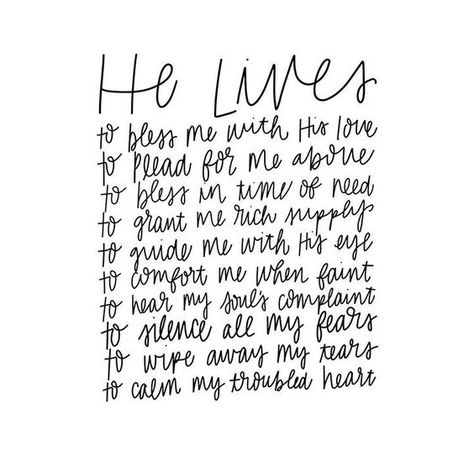 He Lives
to bless me with His love
to plead for me above
to bless in time of need
to grant me rich supply
to guide me with His eye
to comfort me when faint
to hear my soul's complaint
to silence all my fears
to wipe away my tears
to calm my troubled heart